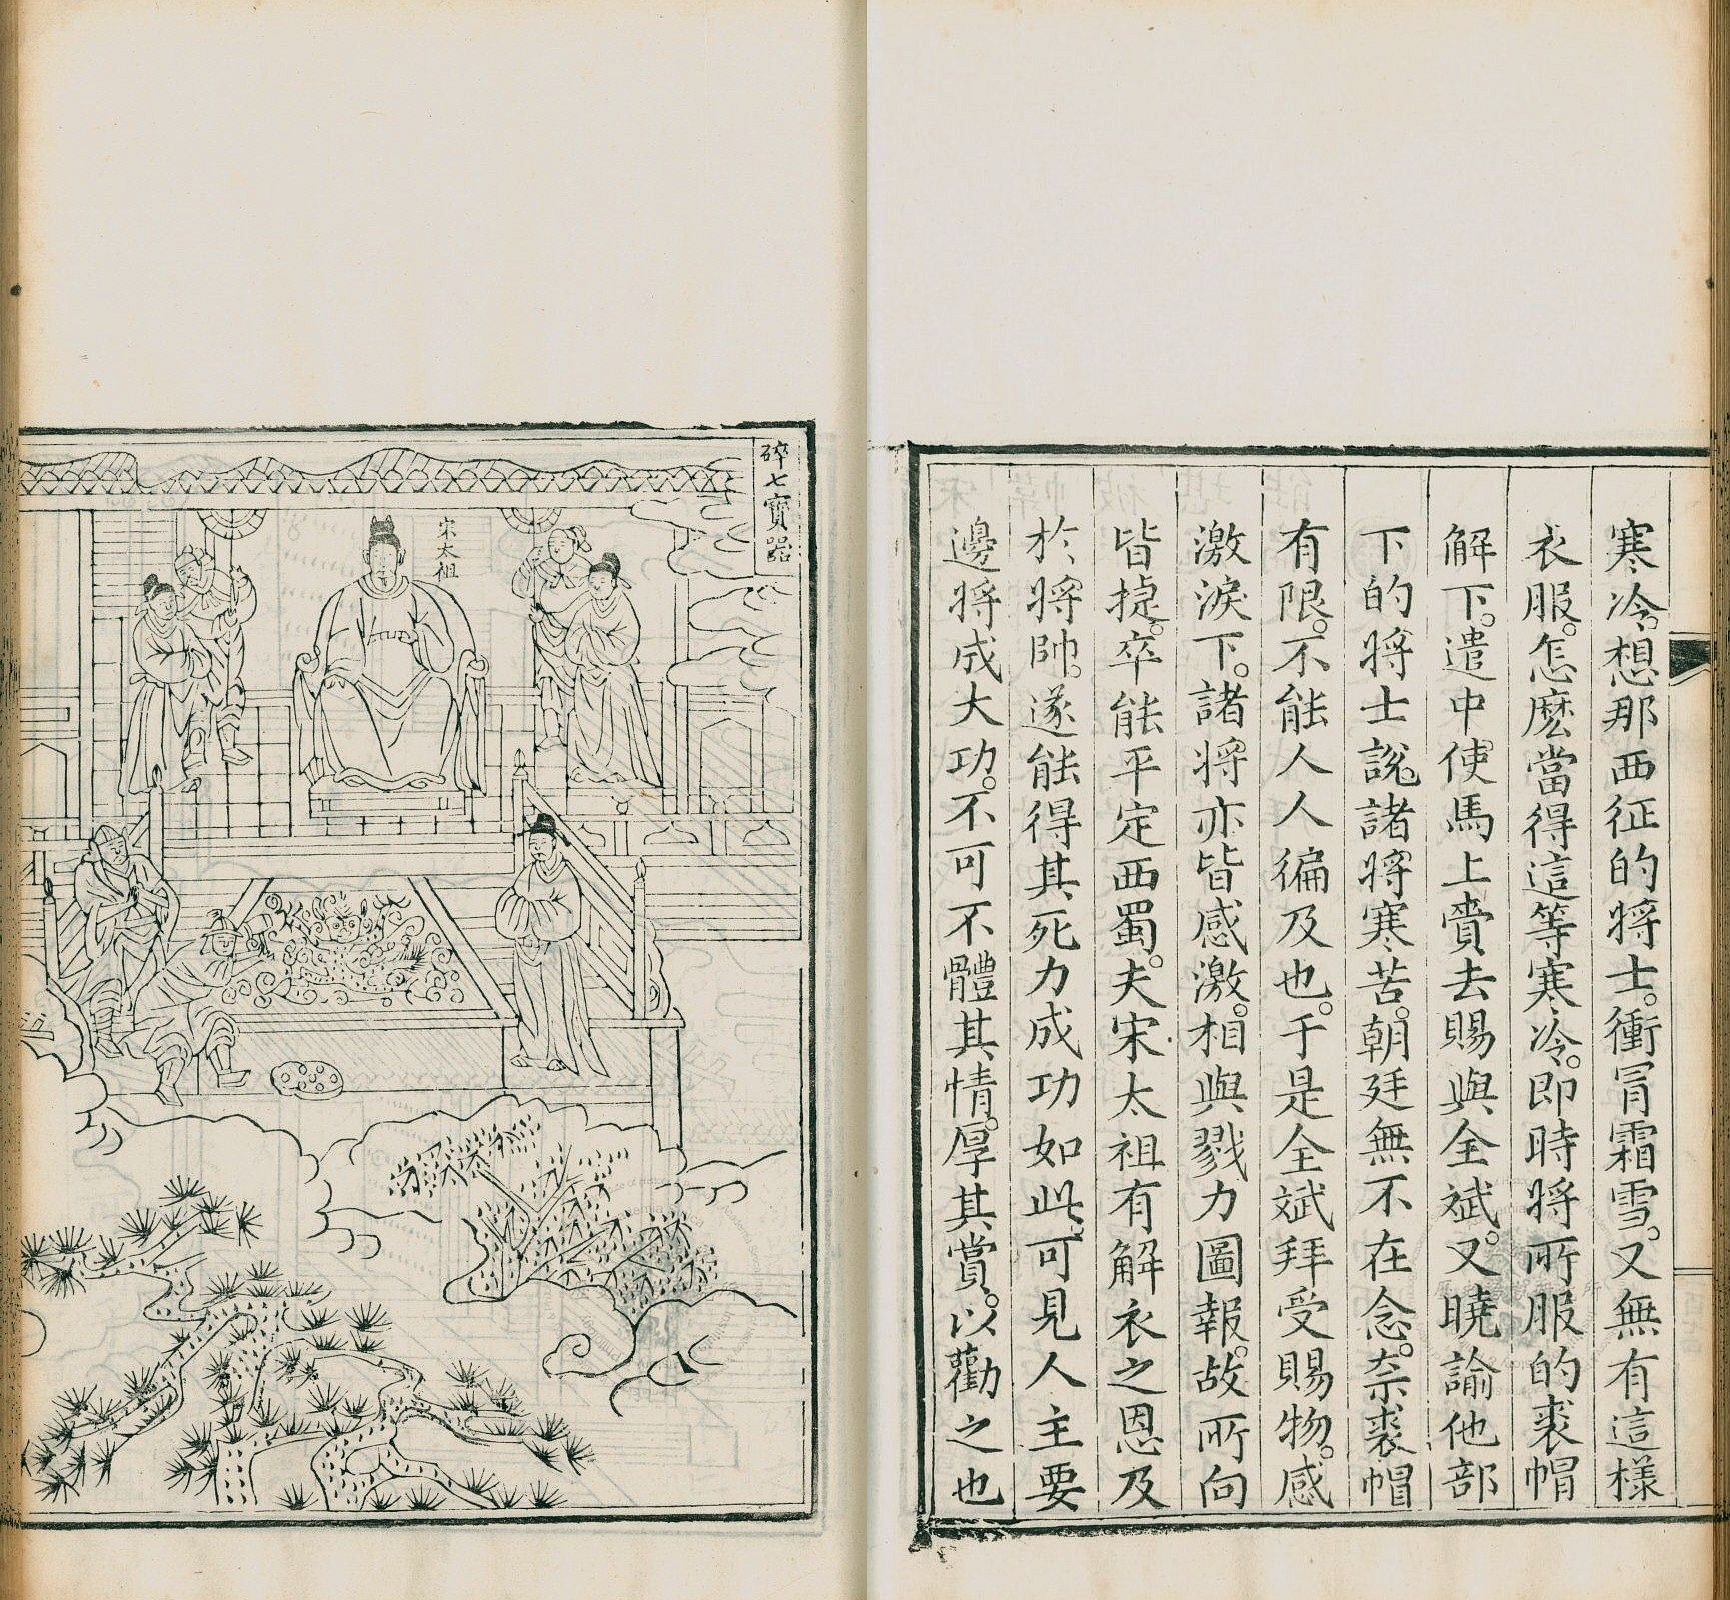 寒冷。想那西征的將士。衝冒霜雪。又無有這樣
衣服。怎麽當得這等寒冷。即時將所服的裘帽
解下。遣中使馬上賫去賜與全斌。又曉諭他部
下的將士說。諸將寒苦。朝廷無不在念。柰裘帽
有限。不能人人徧及也。于是全斌拜受賜物。感
激淚下。諸將亦皆感激。相與戮力圖報。故所向
皆捷。卒能平定西蜀。夫宋太祖有解衣之恩及
於將帥。遂能得其死力成功如此。可見人主要
邊將成大功。不可不體其情。厚其賞。以勸之也
碎七寶器
宋太祖